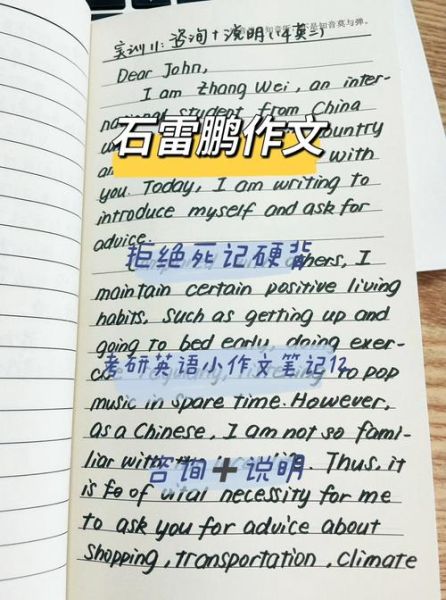 是知音莫与弹。
实训11:咨询+说明(14英二)
Dear John,
I am Zhang Wei, an inter-
national student from China
石雷鹏作文
country
with
you. Today, I am writing to
introduce myself and ask for
advice.
拒绝死记硬背
others, I
maintain certain positive living
habits, such as getting up and
going to bed early, doing exer-
考研英语小作文笔记12
to pop
music in spare time. However,
as a Chinese, I am not so fami-
liar with
咨询➕说明
. Thus, it
is of vital necessity for me
to ask you for advice about
shopping, transportation, climate